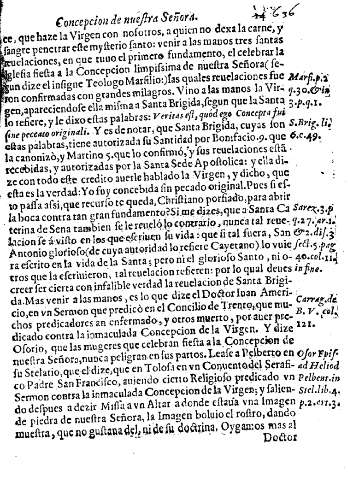 Concepcion de nuestra Señora. 636
ce, que haze la Virgen con nosotros, a quien no dexa la carne, y
sangre penetrar este mysterio santo: venir a las manos tres santas
reuelaciones, en que tuuo el primero fundamento, el celebrar la
Iglesia fiesta a la Concepcion limpissima de nuestra Señora (se-
gun dize el insigne Teologo Marsilio:) las quales reuelaciones fue
ron confirmadas con grandes milagros. Vino a las manos la Vir-
gen, apareciendose ella misma a Santa Brigida, segun que la Santa
lo refiere, y le dixo estas palabras: Veritas est, quòd ego Concepta fui
sine peccato originali. Y es de notar, que Santa Brigida, cuyas son
estas palabras, tiene autorizada su Santidad por Bonifacio. 9. que
la canonizò, y Martino 5. que lo confirmò, y sus reuelaciones està
recebidas, y autorizadas por la Santa Sede Apostolica: y ella di-
ze con todo este credito auerle hablado la Virgen, y dicho, que
esta es la verdad: Yo fuy concebida sin pecado original. Pues si es-
to passa assi, que recurso te queda, Christiano porfiado, para abrir
la boca contra tan gran fundamento? Si me dizes, que a Santa Ca
terina de Sena tambien se le reuelò lo contrario, nunca tal reue-
lacion se à visto en los que escriuen su vida: que si tal fuera, San
Antonio glorioso (de cuya autoridad lo refiere Cayetano) lo vuie
ra escrito en la vida de la Santa; pero ni el glorioso Santo, ni o-
tros que la escriuieron, tal reuelacion refieren: por lo qual deues
creer ser cierta con infalible verdad la reuelacion de Santa Brigi-
da. Mas venir a las manos, es lo que dize el Doctor Iuan Ameri-
cio, en vn Sermon que predicò en el Concilio de Trento, que mu-
chos predicadores an enfermado, y otros muerto, por auer pre-
dicado contra la inmaculada Concepcion de la Virgen. Y dize
Osorio, que las mugeres que celebran fiesta a la Concepcion de
nuestra Señora, nunca peligran en sus partos. Lease a Pelberto en
su Stelario, que el dize, que en Tolosa en vn Conuento del Serafi-
co Padre San Francisco, auiendo cierto Religioso predicado vn
Sermon contra la inmaculada Concepcion de la Virgen; y salien-
do despues a dezir Missa a vn Altar donde estaua vna Imagen
de piedra de nuestra Señora, la Imagen boluio el rostro, dando
muestra, que no gustaua del, ni de su doctrina. Oygamos mas al
Doctor
Mars. p. 2
q. 30. & in
3. p. q. 1.
S. Brig. li.
6. c. 49.
Suarez. 3. p
& 2. dis. 3
sect. 5. pag
40. col. 11
in fine.
B. V. col.
121.
Osor Epis.
ad Heliod
Pelbert. in
Stel. lib. 4.
p. 2. art. 3.